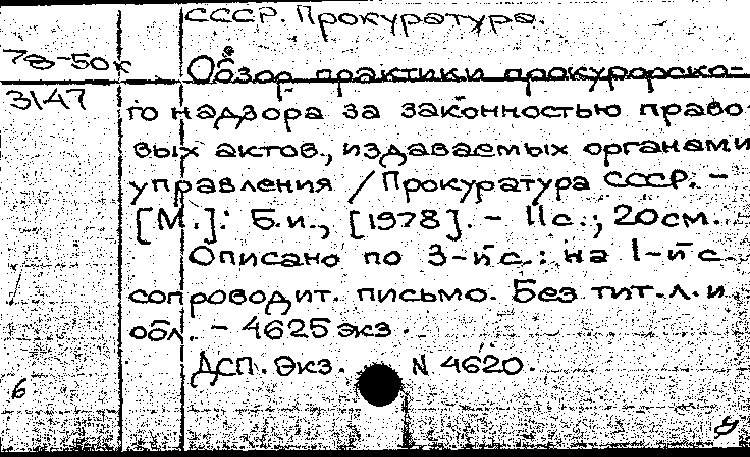 СССР. Прокуратура.
78-50к
Обзор практики прокурорско-
3147
го надзора за законностью право
вых актов, издаваемых органами
управления / Прокуратура СССР. -
[М.]: Б.и., [1978]. - 11с.; 20см.
Описано по 3-й с.: на 1-й с
сопроводит. письмо. Без тит.л. и
обл. - 4625 экз.
ДСП. Экз. N 4620.
6